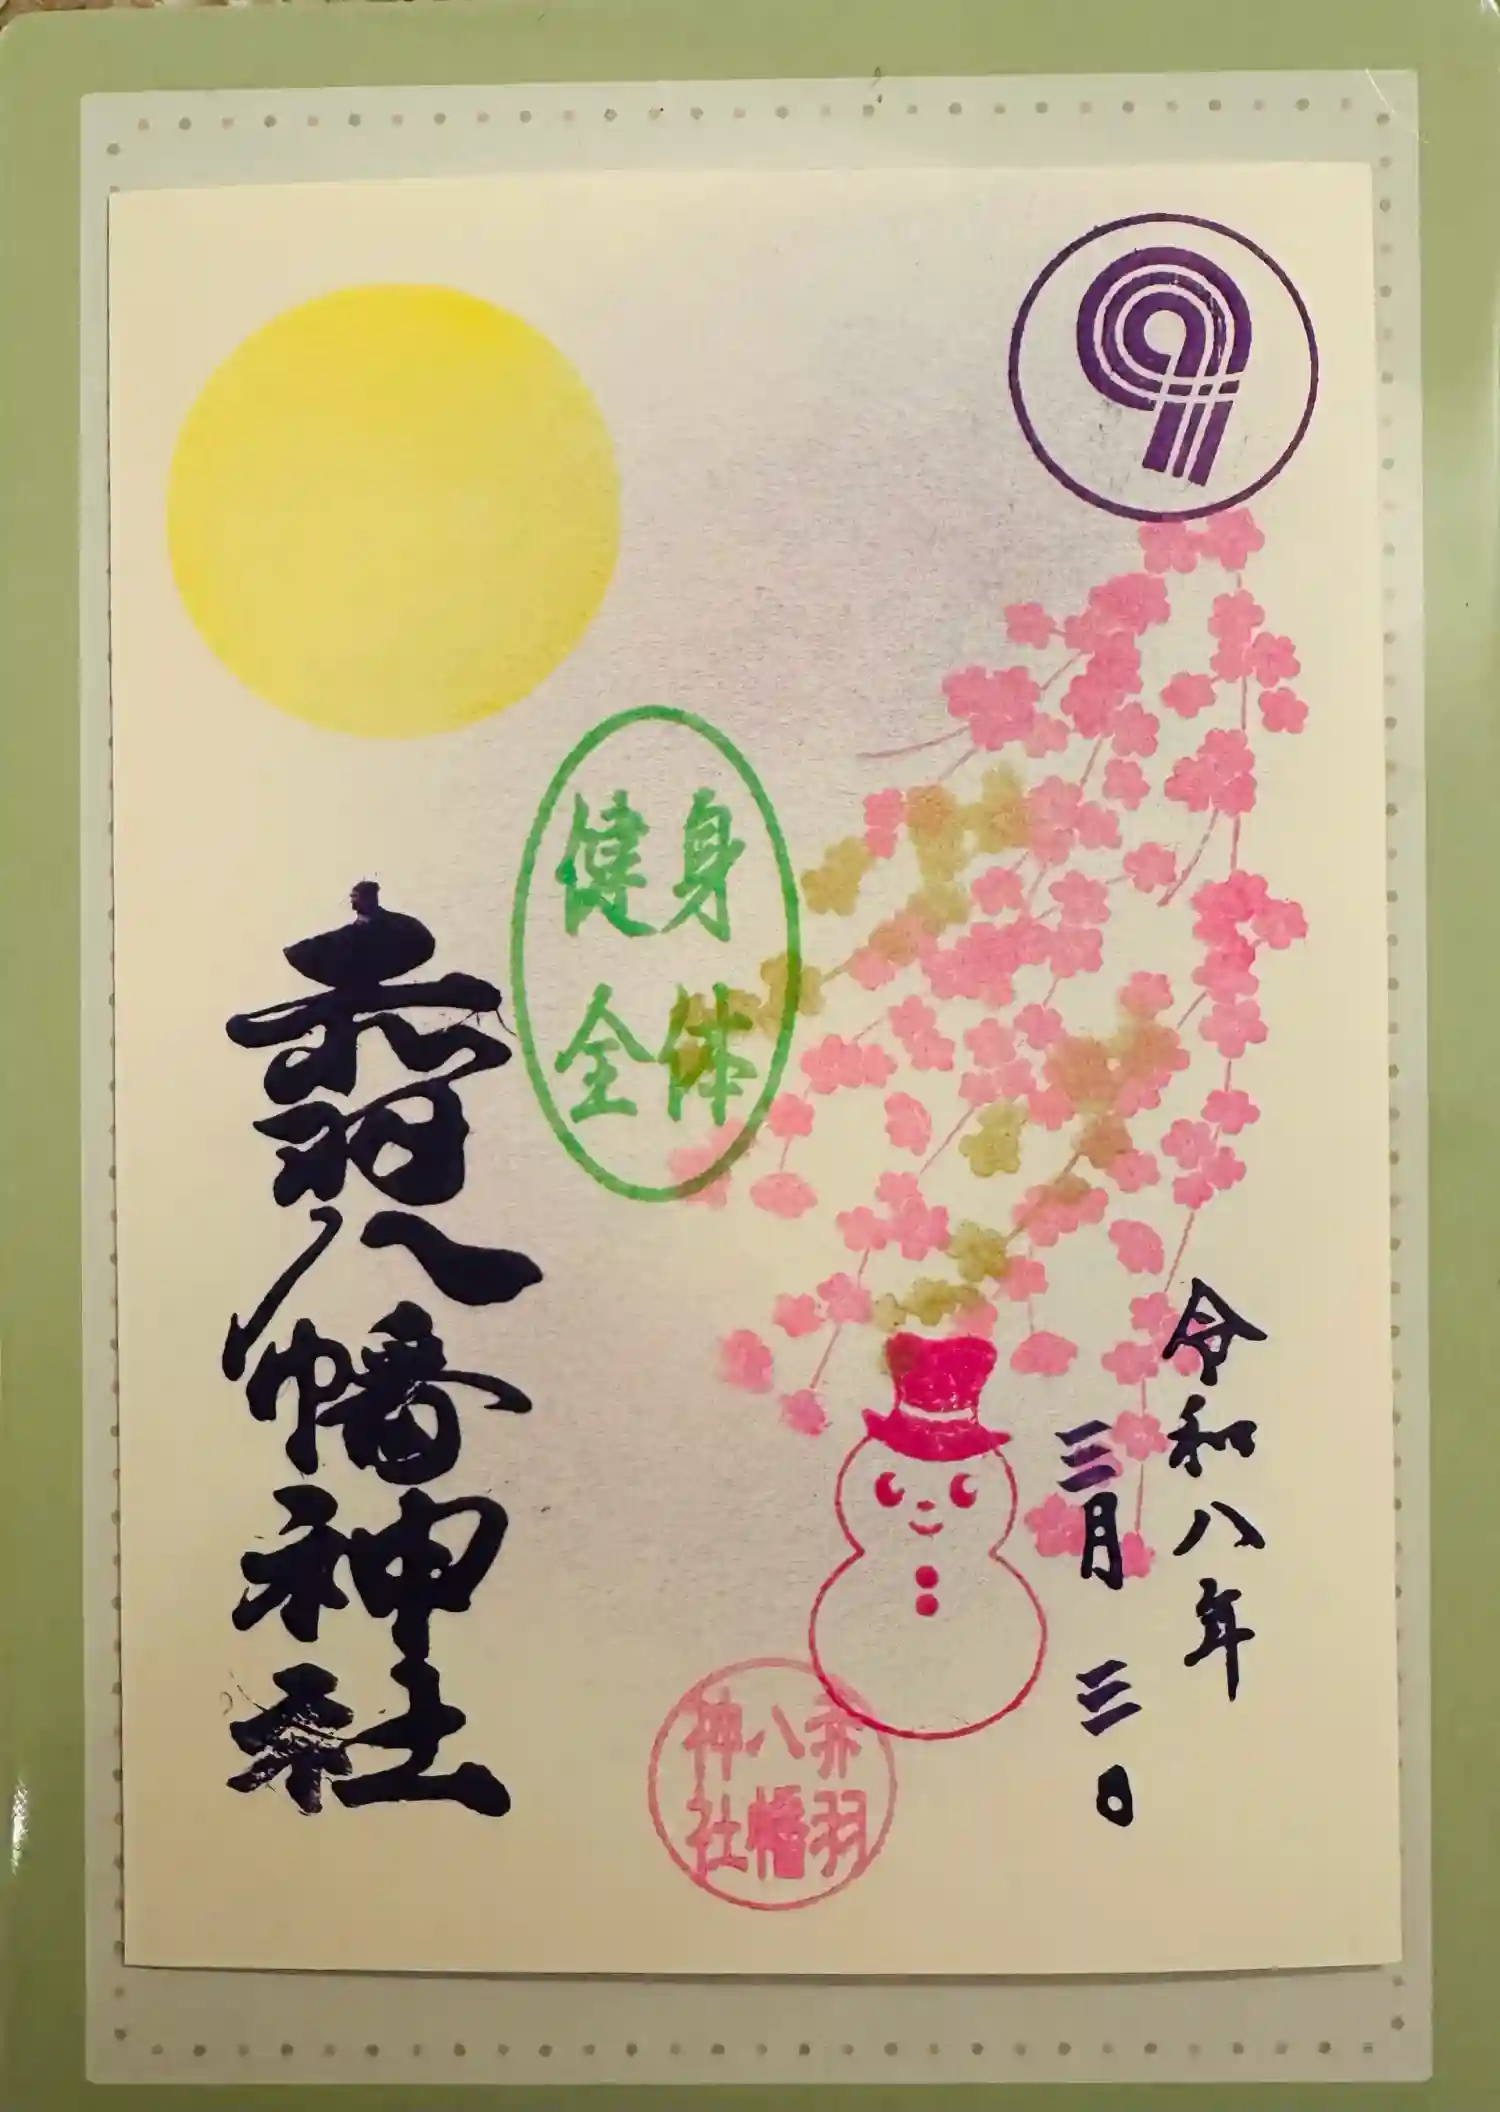 令和八年
三月三日
身体
健全
赤羽八幡神社
赤羽
八幡
神社